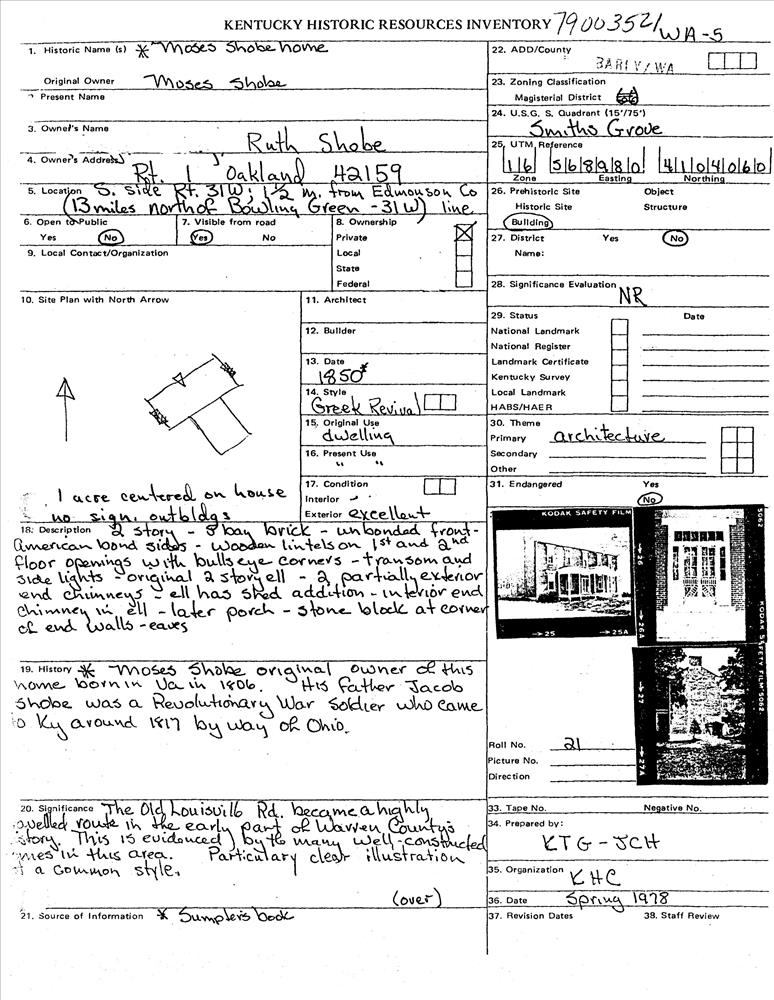 KENTUCKY HISTORIC RESOURCES INVENTORY 79003521/WA-5
1. Historic Name (s) * Moses Shobe home
Original Owner Moses Shobe
2. Present Name
3. Owner's Name
Ruth Shobe
4. Owner's Address
Rt. 1 Oakland 42159
5. Location S. side Rt. 31W; 1½ m. from Edmonson Co
(13 miles north of Bowling Green - 31W) line
6. Open to Public
Yes No
7. Visible from road
Yes No
8. Ownership
Private
Local
State
Federal
9. Local Contact/Organization
10. Site Plan with North Arrow
1 acre centered on house
no sign. outbldgs
11. Architect
12. Builder
13. Date
1850*
14. Style
Greek Revival
15. Original Use
dwelling
16. Present Use
" "
17. Condition
Interior
Exterior excellent
18. Description 2 story - 5 bay brick - unbonded front -
American bond sides - wooden lintels on 1st and 2nd
floor openings with bullseye corners - transom and
side lights - original 2 story ell - 2 partially exterior
end chimneys - ell has shed addition - interior end
chimney in ell - later porch - stone block at corner
of end walls - eaves
19. History * Moses Shobe original owner of this
home born in Va in 1806. His father Jacob
Shobe was a Revolutionary War Soldier who came
to Ky around 1817 by way of Ohio.
20. Significance The Old Louisville Rd. became a highly
avelled route in the early part of Warren County's
story. This is evidenced by the many well-constructed
mes in this area. Particulary clear illustration
f a common style.
(over)
21. Source of Information * Sumpter's book
22. ADD/County
BARIV/WA
23. Zoning Classification
Magisterial District
24. U.S.G. S. Quadrant (15'/75')
Smiths Grove
25. UTM Reference
16 568980 4104060
Zone Easting Northing
26. Prehistoric Site Object
Historic Site Structure
Building
27. District Yes No
Name:
28. Significance Evaluation
NR
29. Status Date
National Landmark
National Register
Landmark Certificate
Kentucky Survey
Local Landmark
HABS/HAER
30. Theme
Primary architecture
Secondary
Other
31. Endangered Yes
No
KODAK SAFETY FILM
5062
→25 →25A
→26 →26A
KODAK SAFETY FILM 5062
→27 →27A
Roll No. 21
Picture No.
Direction
33. Tape No. Negative No.
34. Prepared by:
KTG - JCH
35. Organization KHC
36. Date Spring 1978
37. Revision Dates 38. Staff Review